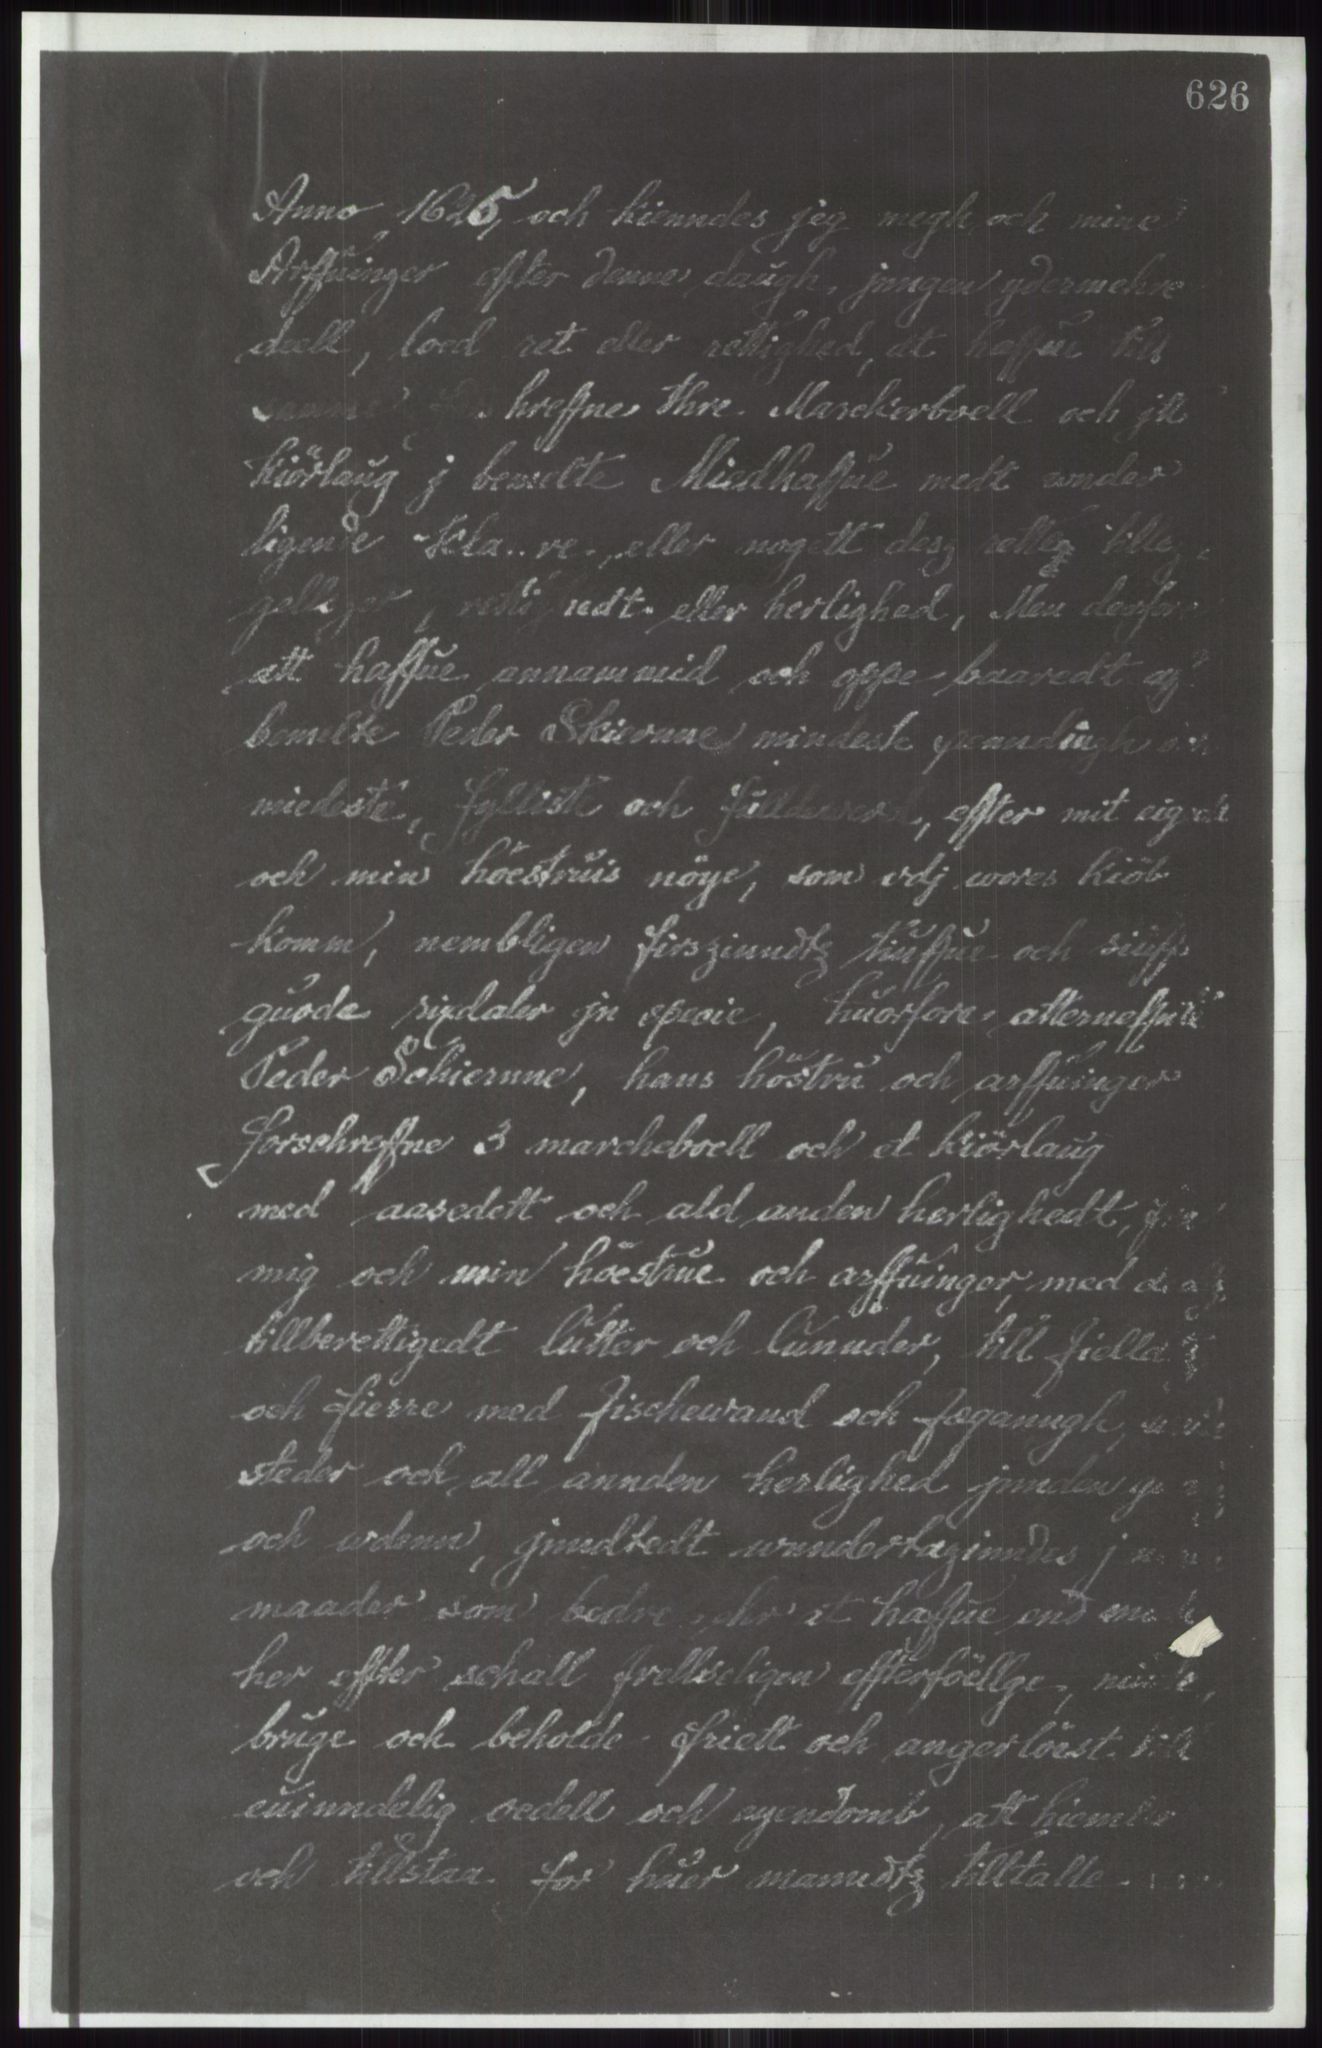 626
Anno 1625, och kienndes jeg megh och mine
Arffuinger effter denne daugh, jnngen ydermehre
deell, lood ret eller rettighed, at haffue till
samme hreffne thre Marckerboell och jtt
kiörlaug j bemelte Miedhaffue medt under
ligende eller nogett desz rette
eller herlighed, Men derfor
att haffue annammid och oppe baaredt
bemelte Peder Skierune mindeste pendingh och
miedeste, fylliste och fulldwerd, effter mit eiget
och min höestruis nöye, som vdj wores kiöb
komm, nembligen firszinndtz tiuffue och siuff
guode rixdaler jn specie, huorfore atterneffnte
Peder Schierune, hans höstru och arffuinger
forschreffne 3 marcheboell och et kiörlaug
med aasedett och ald anden herlighedt, fra
mig och min höestrue och arffuinger, med
tillberettigedt lutter och lunnder, till fielld
och fierre med fischewand och fæganngh,
steder och all annden herlighed jnnden
och udenn, jnndtedt wundertaginndes j
maader som bedre ehr at haffue end
her effter schall frellseligen effterföellge,
bruge och beholde friett och angerlöest till
euinndelig oedell och eyendomb, att hiemble
och tillstaa for huer manndtz tilltalle